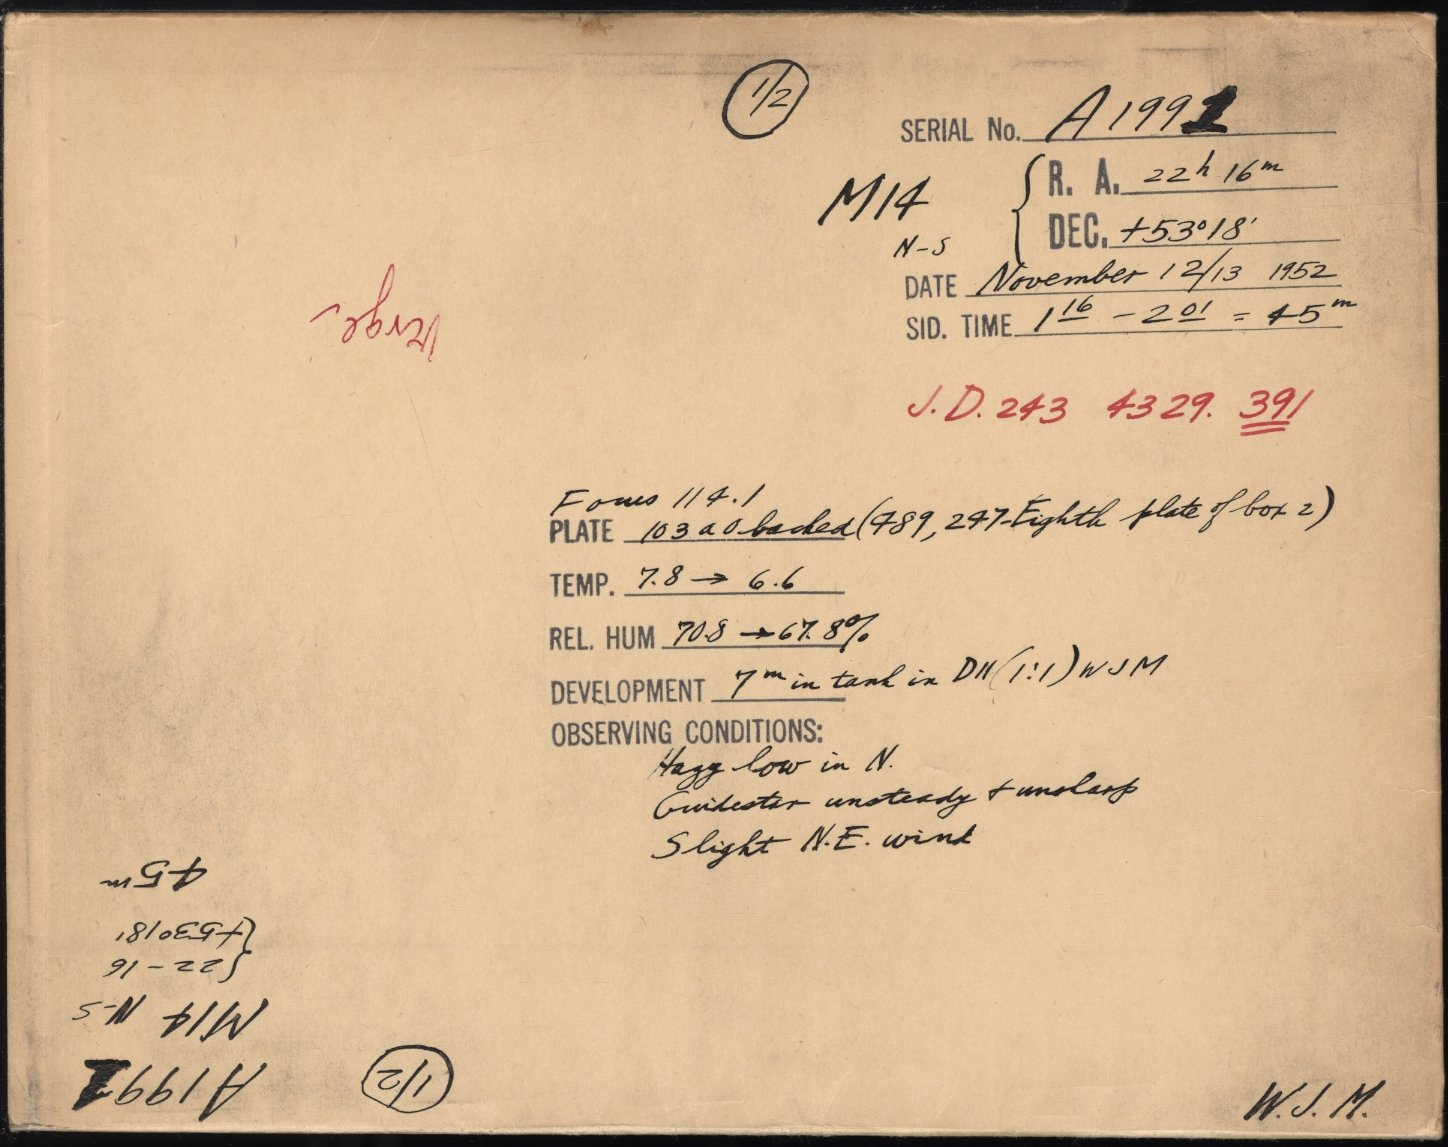 1/2
SERIAL No. A1991
M14
N-S
R. A. 22h 16m
DEC. +53°18'
DATE November 12/13 1952
SID. TIME 1 16 - 2 01 = 45m
J.D. 243 4329. 391
Focus 114.1
PLATE 103aO backed (489, 247-Eighth plate of box 2)
TEMP. 7.8 → 6.6
REL. HUM 70.8 → 67.8%
DEVELOPMENT 7m in tank in D11 (1:1) WJM
OBSERVING CONDITIONS:
Hazy low in N.
Guidestar unsteady + unsharp
Slight N.E. wind
W.J.M.
1/2
A1991
M14 N-S
{22-16
{+53°18'
45m